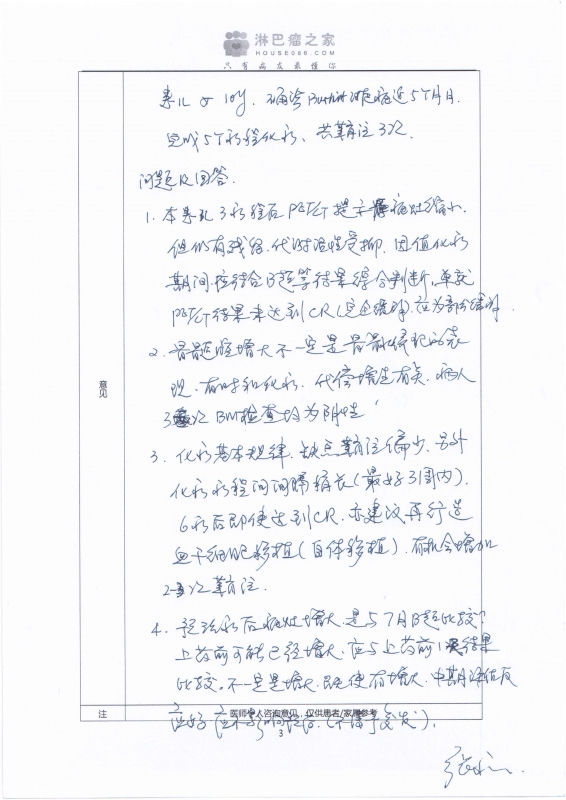 淋巴瘤之家
HOUSE086.COM
只有病友最懂你
患儿 ♂ 10y, 确诊Burkitt淋巴瘤近5个月,
完成5个疗程化疗、共鞘注3次
问题及回答.
1. 本患儿3疗程后PET/CT提示病灶缩小,
但仍有残留,代谢活性受抑,因值化疗
期间,应结合B超等结果综合判断,单就
PET/CT结果未达到CR(完全缓解),应为部分缓解.
2. 骨髓腔增大不一定是骨髓侵犯的表
现,有时和化疗、代偿增生有关,病人
3次BM检查均为阴性
3. 化疗基本规律,缺点鞘注偏少,另外
化疗疗程间间隔稍长(最好3周内).
6疗后即使达到CR,亦建议再行造
血干细胞移植(自体移植),有机会增加
2次鞘注.
4. 疗后病灶增大,是与7月B超比较?
上药前可能已经增大,应与上药前结果
比较,不一定是增大,既使有增大,中期评估反
应好,应不影响(不属于复发).
意见
注
医师个人咨询意见,仅供患者/家属参考
3